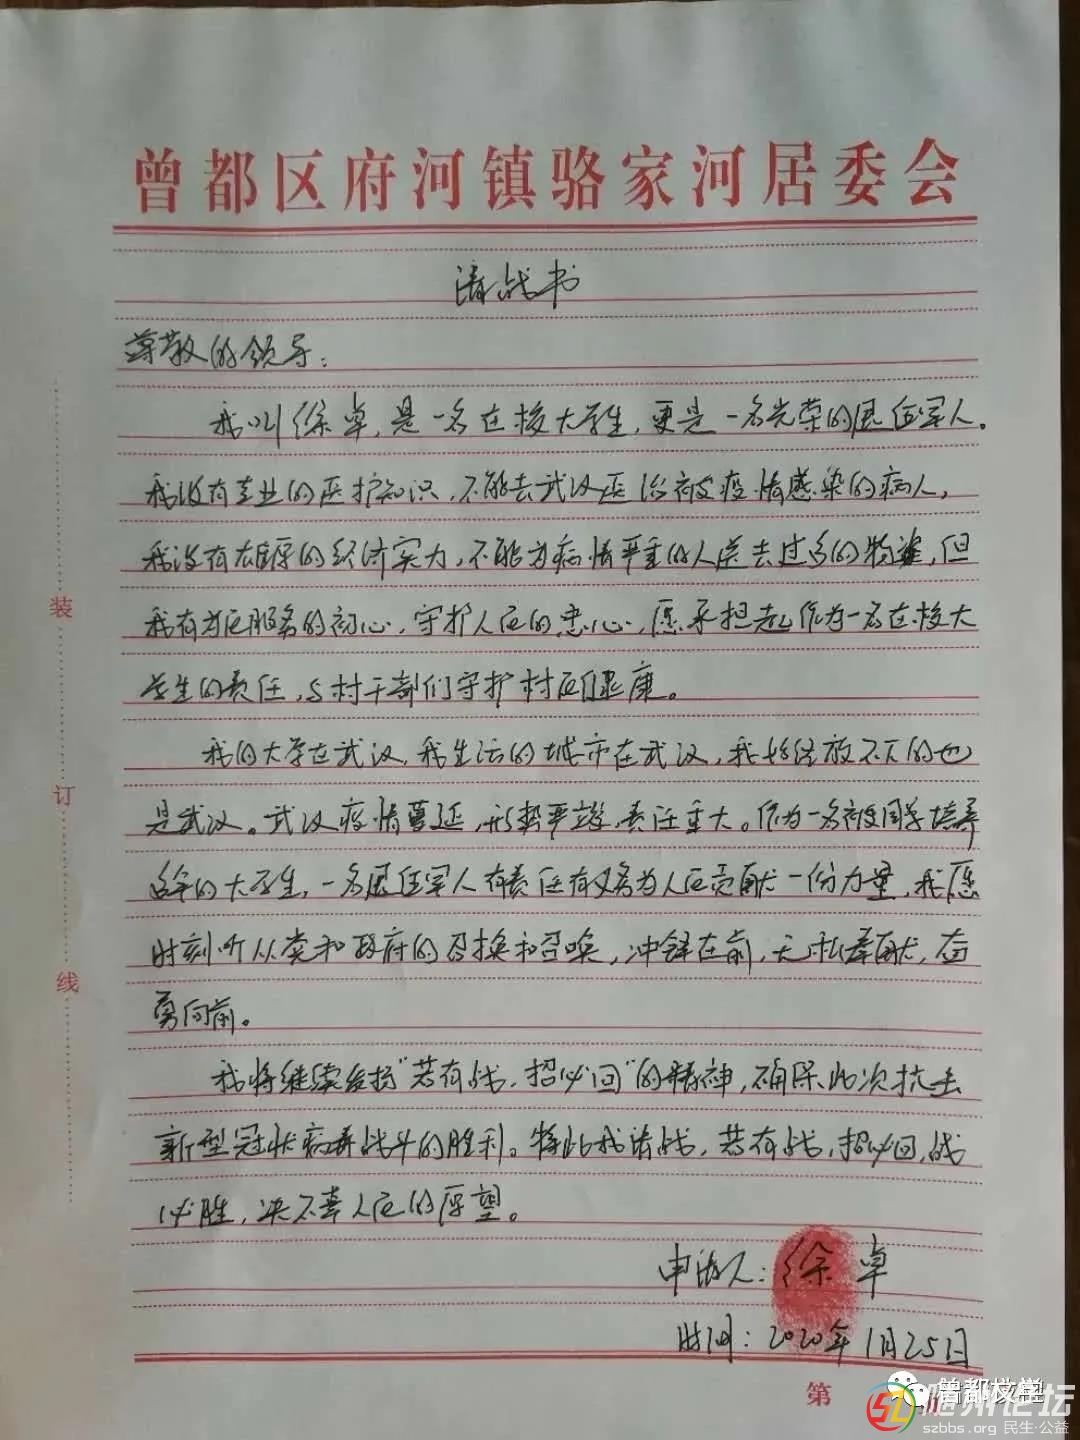 曾都区府河镇骆家河居委会
请战书
尊敬的领导：
我叫徐卓，是一名在校大学生，更是一名光荣的退伍军人。
我没有专业的医护知识，不能去武汉医治被疫情感染的病人，
我没有雄厚的经济实力，不能为病情严重的人送去过多的物资，但
我有为民服务的初心，守护人民的忠心，愿承担起作为一名在校大
学生的责任，与村干部们守护村民健康。
我的大学在武汉，我生活的城市在武汉，我始终放不下的也
是武汉。武汉疫情蔓延，形势严峻，责任重大。作为一名被国家培养
多年的大学生，一名退伍军人有责任有义务为人民贡献一份力量，我愿
时刻听从党和政府的召换和召唤，冲锋在前，无私奉献，奋
勇向前。
我将继续发扬“若有战，招必回”的精神，确保此次抗击
新型冠状病毒战斗的胜利。特此我请战，若有战，招必回，战
必胜，决不辜人民的厚望。
申请人：徐卓
时间：2020年1月25日
装
订
线
第
曾都校学
随州论坛
szbbs.org 民生·公益